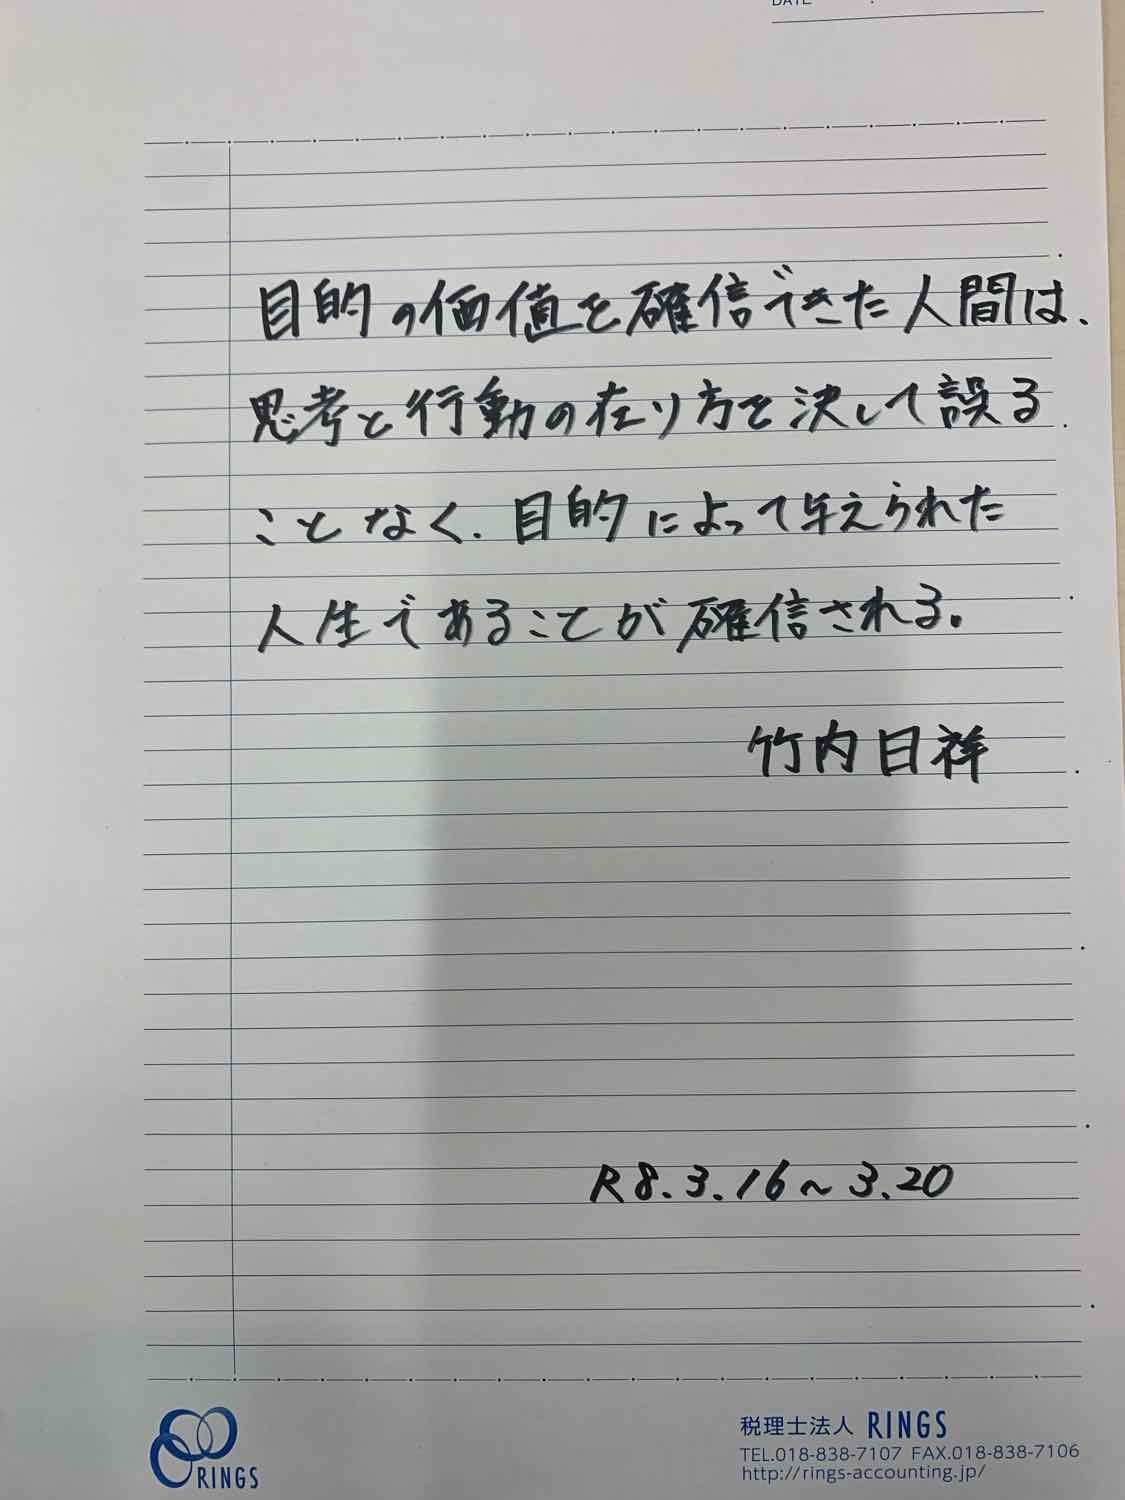 DATE :
目的の価値を確信できた人間は、
思考と行動の在り方を決して誤る
ことなく、目的によって与えられた
人生であることが確信される。
竹内日祥
R8.3.16～3.20
RINGS
税理士法人 RINGS
TEL.018-838-7107 FAX.018-838-7106
http://rings-accounting.jp/